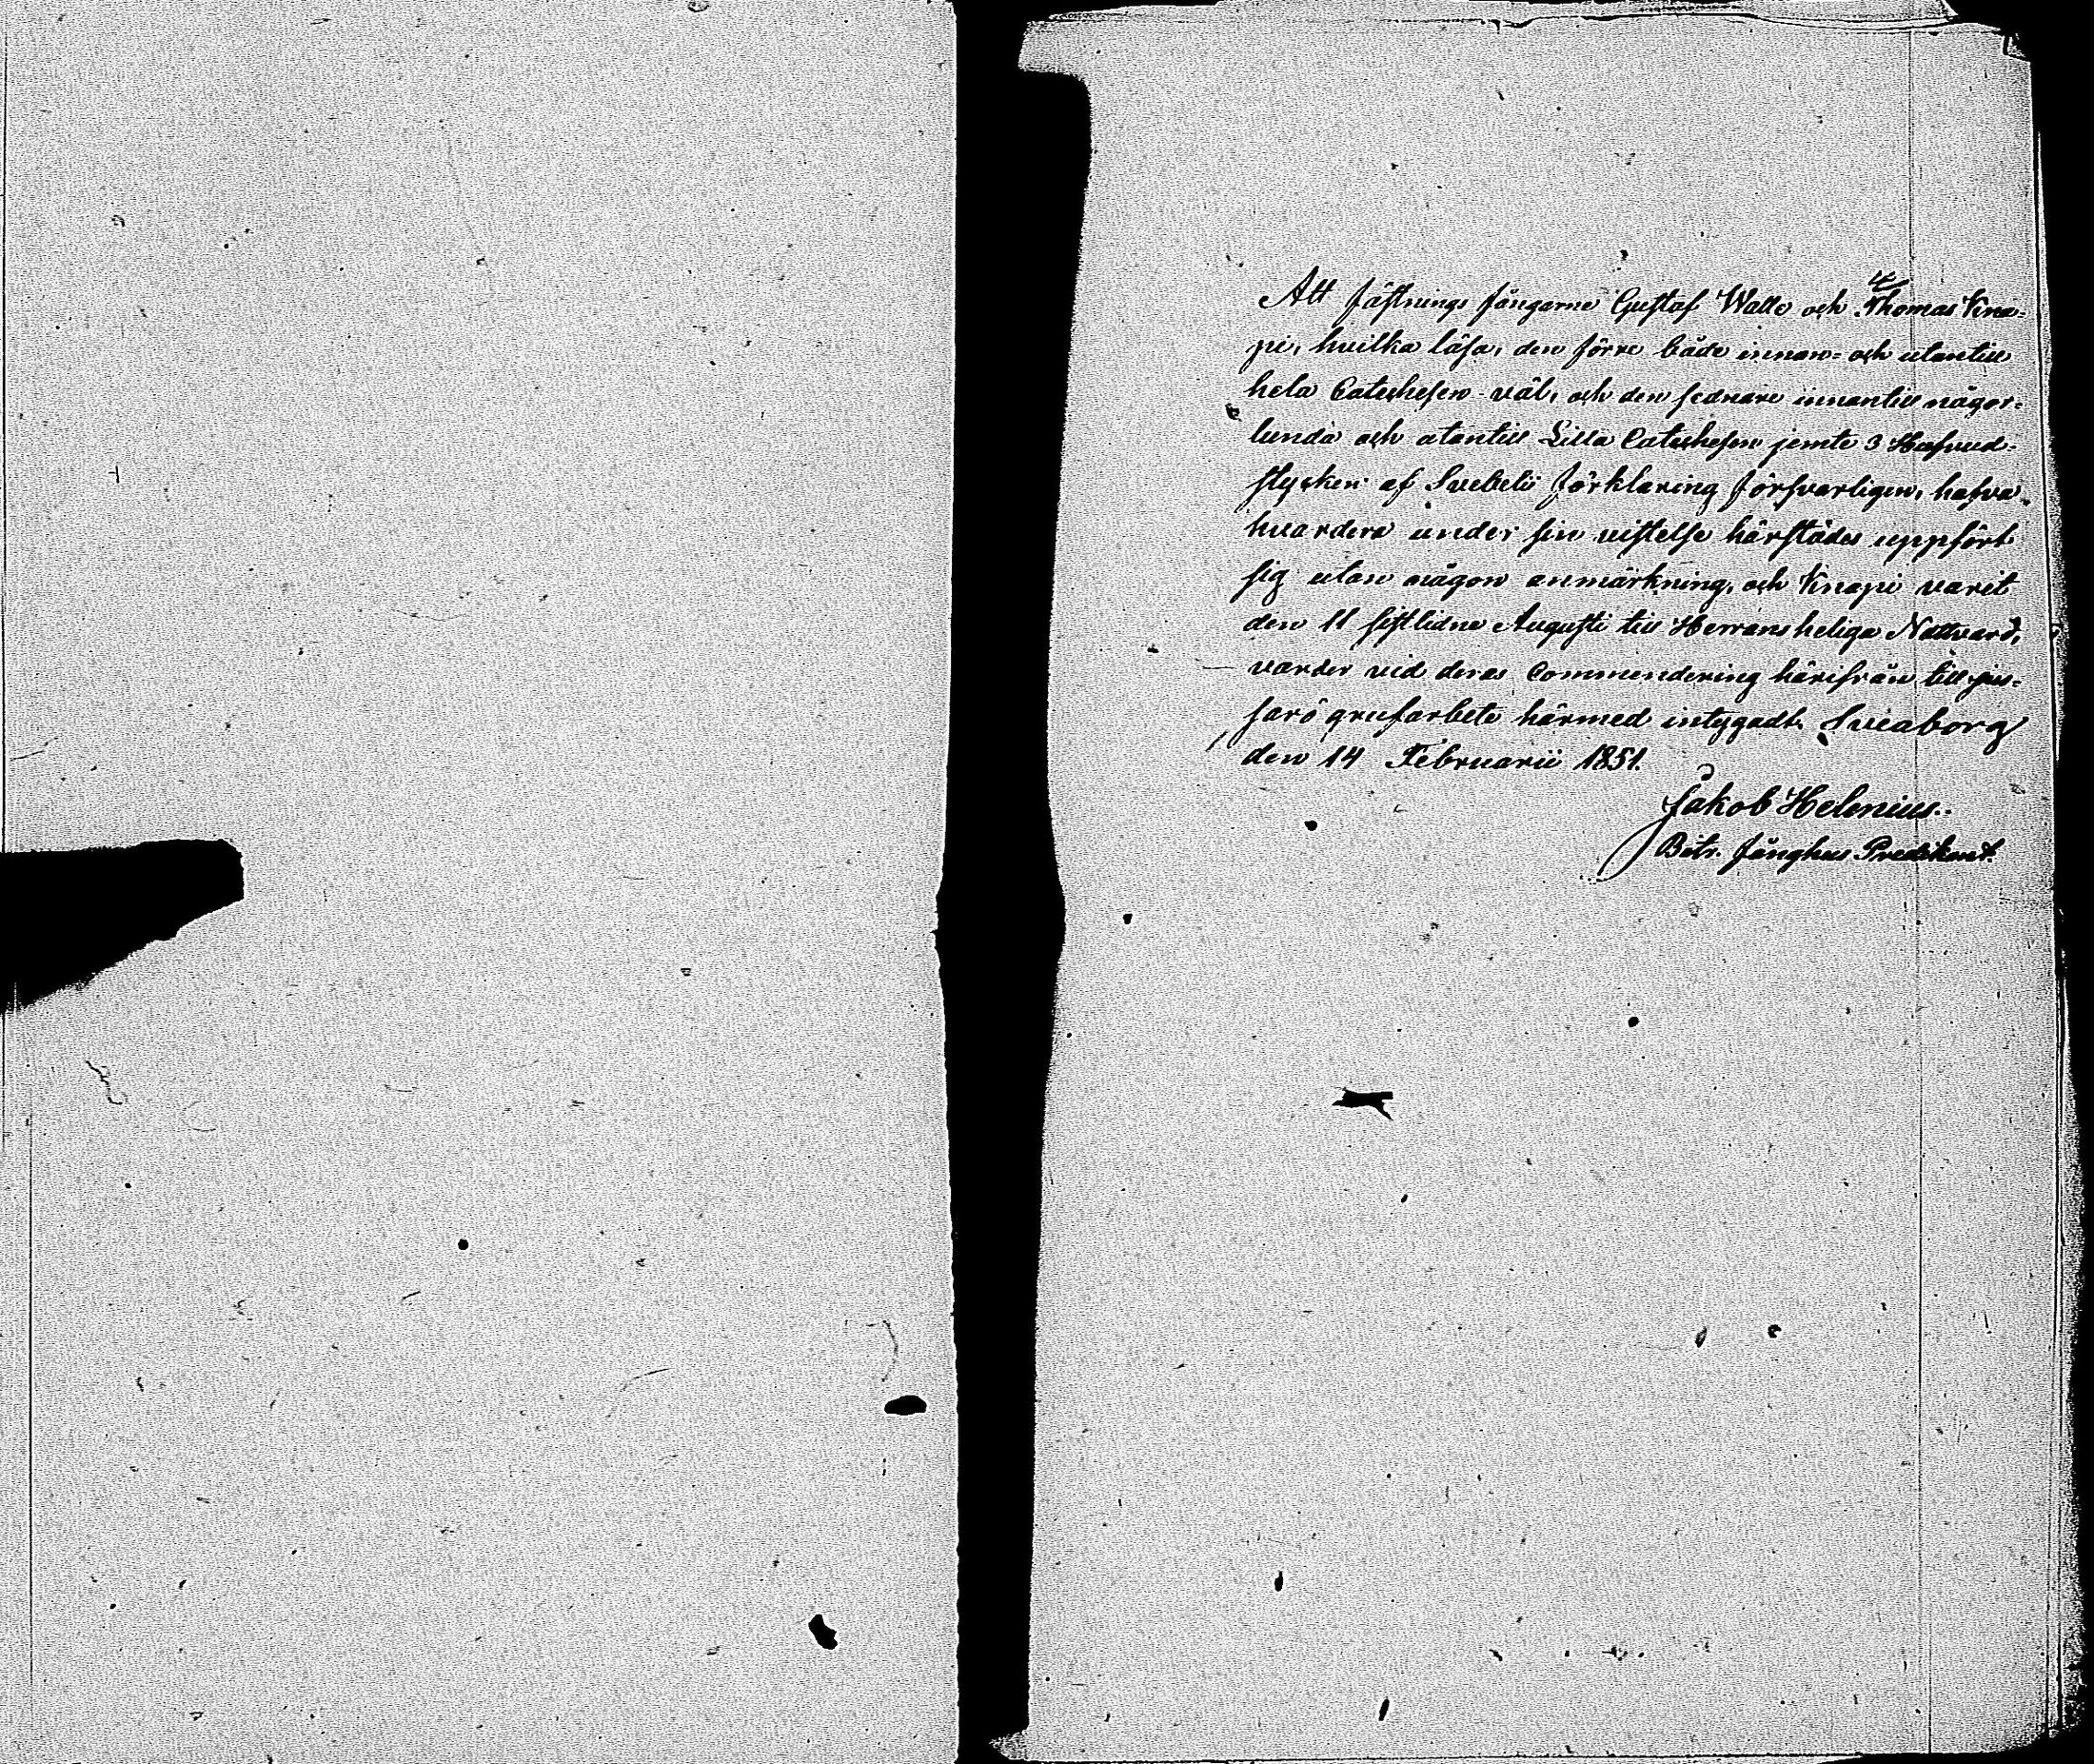 Att fästnings fångarne Gustaf Walle och Thomas Kna=
pi, hvilka läsa, den förre både innan= och utantill
hela Catechesen väl, och den sednare innantill någor=
lunda och utantill Lilla Catechesen jemte 3 Hufvud=
stycken af Svebelii förklaring försvarligen, hafva
hvardera under sin vistelse härstädes uppfört
sig utan någon anmärkning, och Knapi varit
den 11 sistlidne Augusti till Herrans heliga Nattvard,
varder vid deras Commendering härifrån till jus=
sarö grufarbete härmed intygadt. Sveaborg
den 14 Februarii 1851.
Jakob Helenius.
Bitr. Fånghus Predikant.